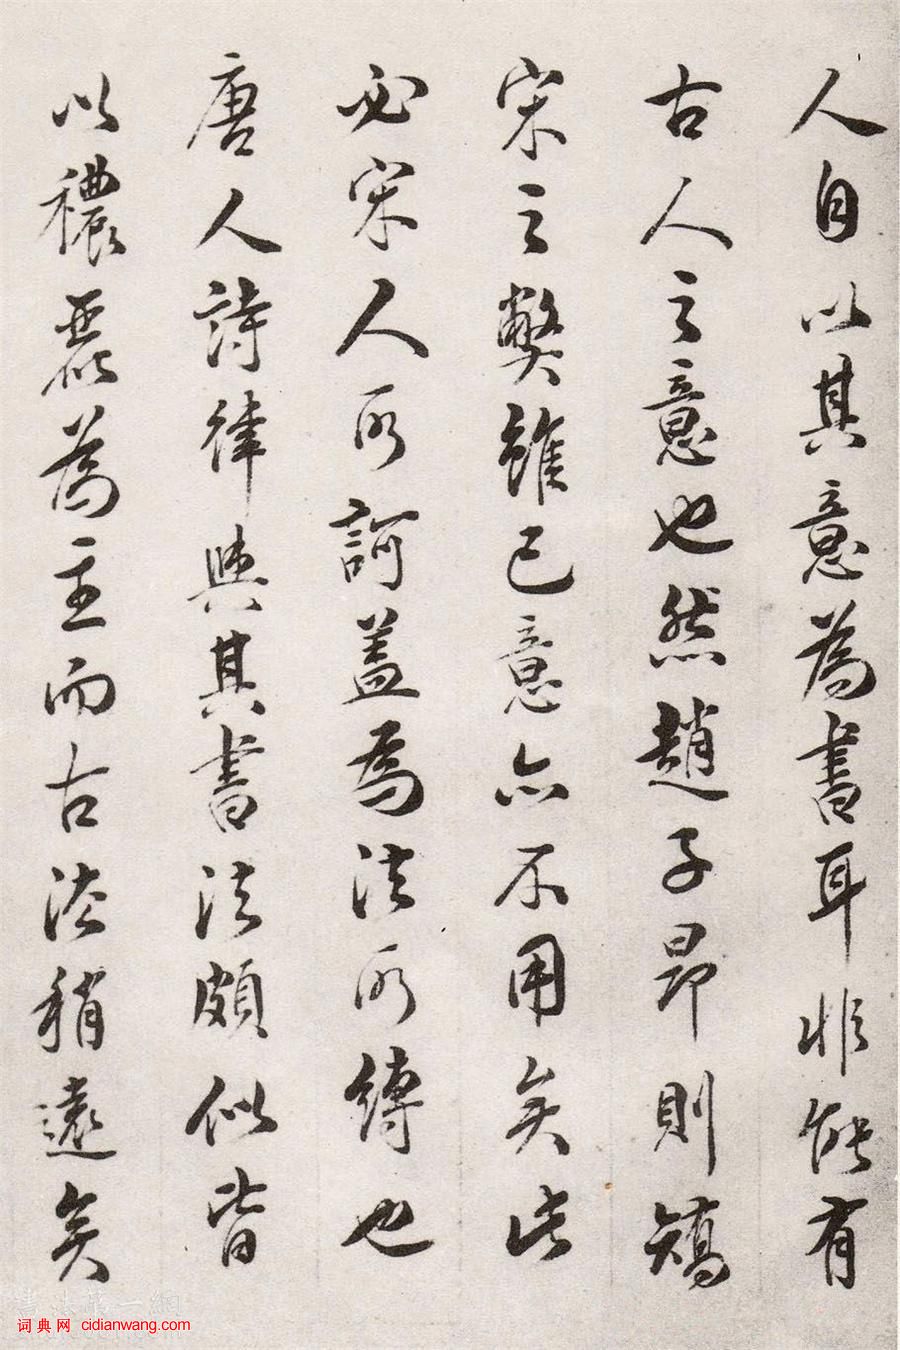 人自以其意為書耳非能有
古人之意也然趙子昂則矯
宋之弊雖己意亦不用矣此
必宋人所訶蓋為法所縛也
唐人詩律與其書法頗似皆
以穠麗為主而古法稍遠矣
词典网 cidianwang.com